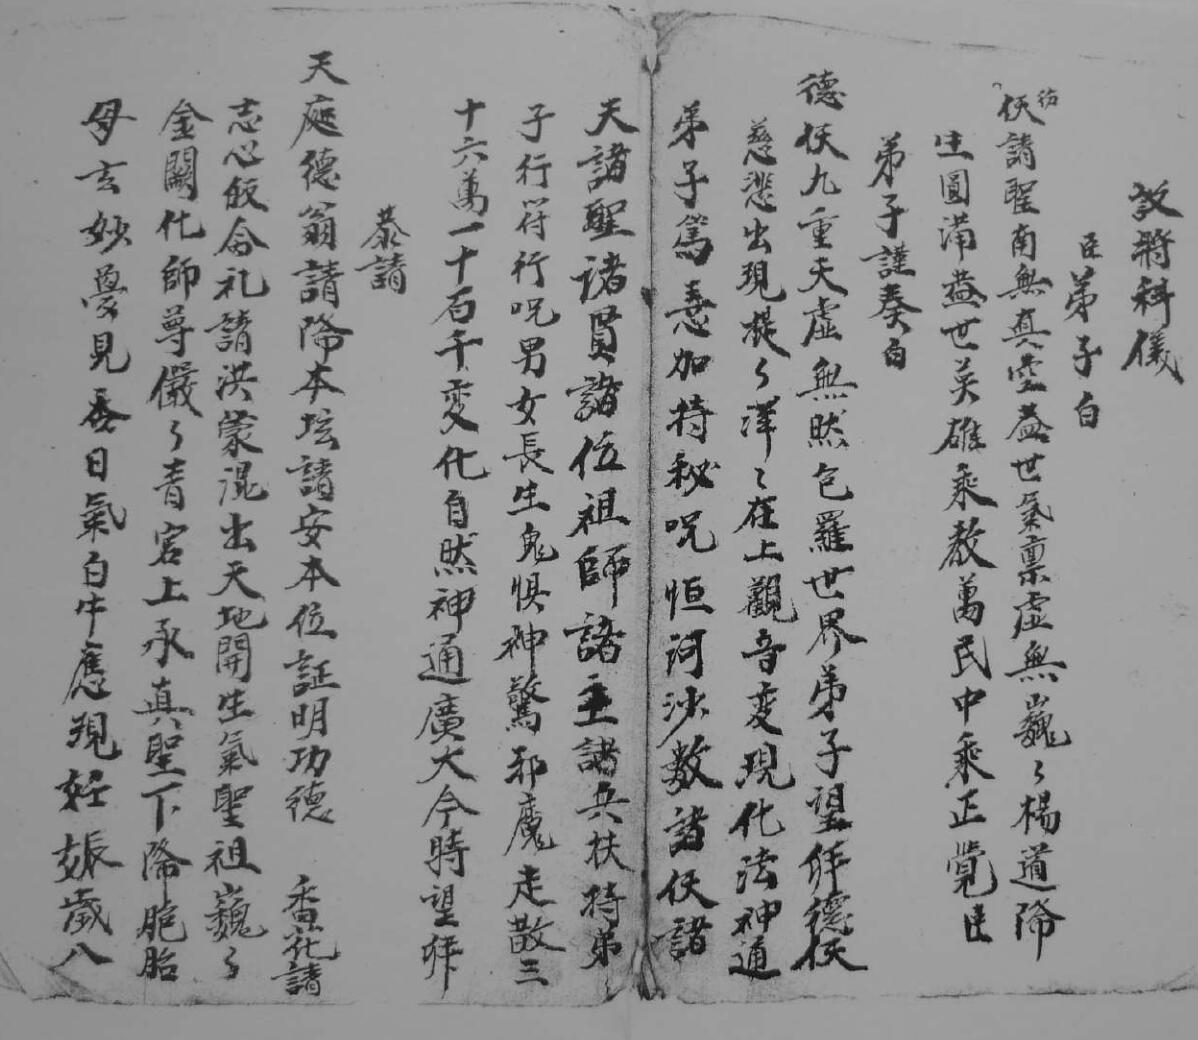 設將科儀
臣弟子白
仗請聖南無真空蓋世氣禀虛無巍々楊道降
生圓滿蓋世英雄乘教萬民中乘正覺臣
弟子謹奏白
德仸九重天虛無然包羅世界弟子望拜德仸
慈悲出現提々洋〻在上觀音变現化法神通
弟子篤意加持秘咒恒河沙数諸仸諸
天諸聖諸賢諸位祖師諸主諸兵扶持弟
子行符行咒男女長生鬼惧神驚邪魔走散三
十六萬一十百千变化自然神通廣大今時望拜
恭請
天庭德翁請降本坛請安本位証明功德 香花請
志心皈命礼請洪蒙混出天地開生氣聖祖巍々
金闕化師尊儼々青宮上承真聖下降胞胎
母玄妙夢見吞日氣白牛應現妊娠歲八